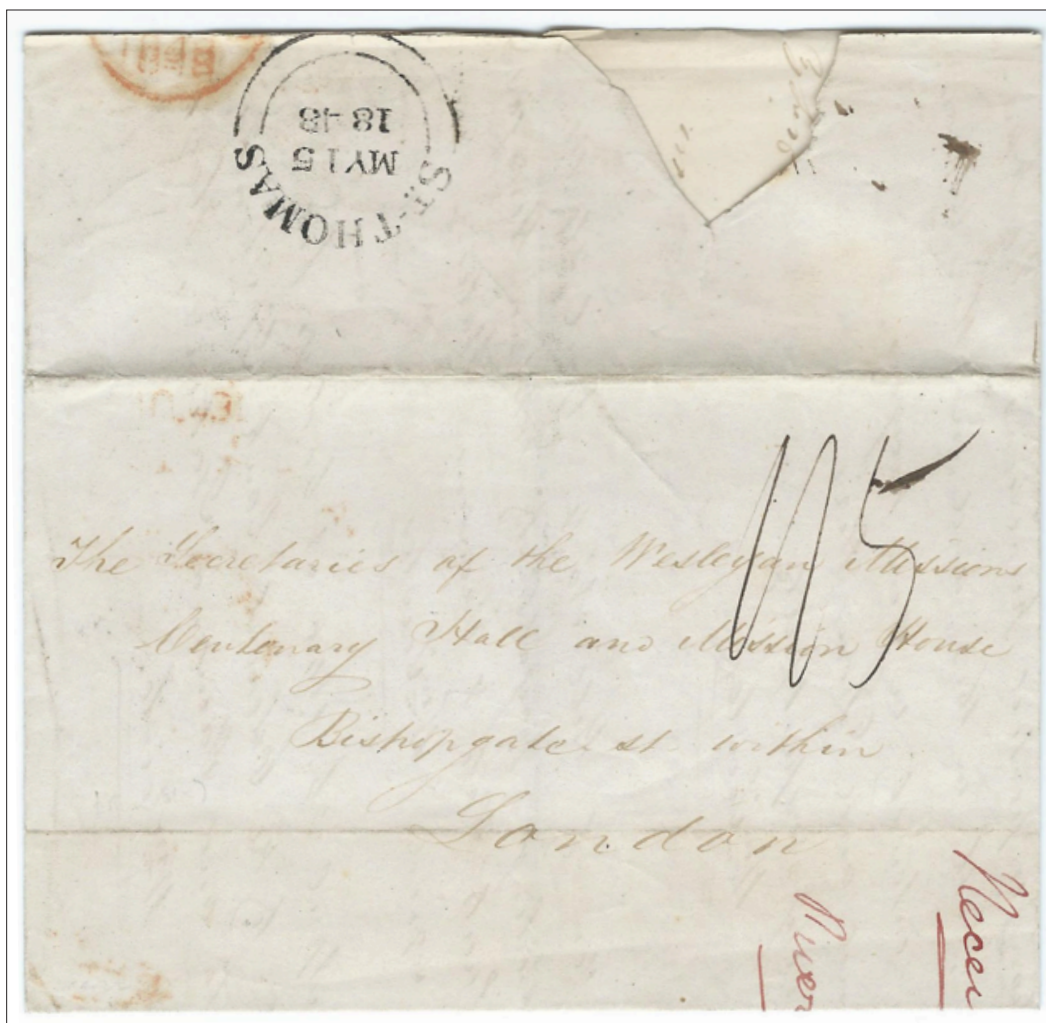 ST. THOMAS
MY 15
1848
115
The Secretaries of the Wesleyan Missions
Centenary Hall and Mission House
Bishopgate st within
London